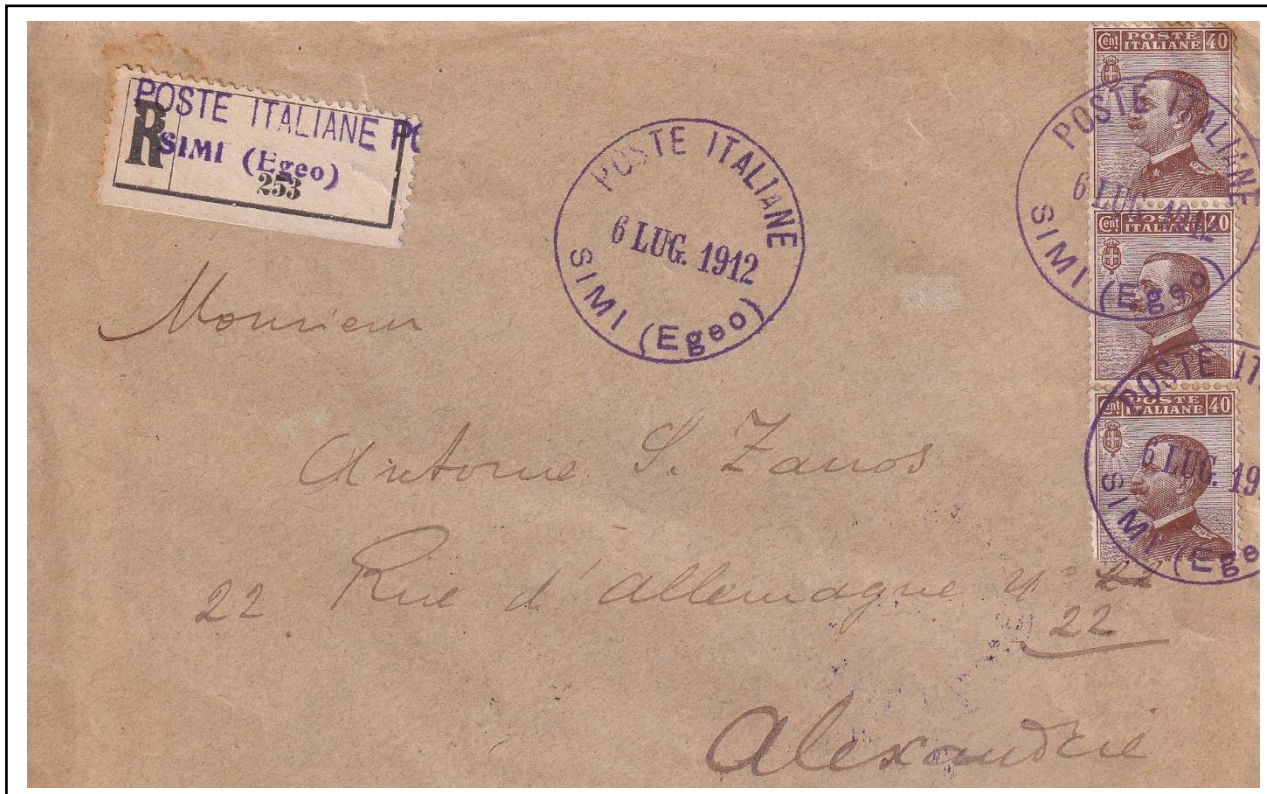 POSTE ITALIANE PO
R SIMI (Egeo)
253
POSTE ITALIANE
6 LUG. 1912
SIMI (Egeo)
Cent POSTE ITALIANE 40
POSTE ITALIANE
6 LUG. 1912
SIMI (Egeo)
Cent POSTE ITALIANE 40
Cent POSTE ITALIANE 40
POSTE IT
6 LUG. 19
SIMI (Ege
Monsieur
Antoine S. Zanos
22 Rue d'Allemagne No 22
22
Alexandrie